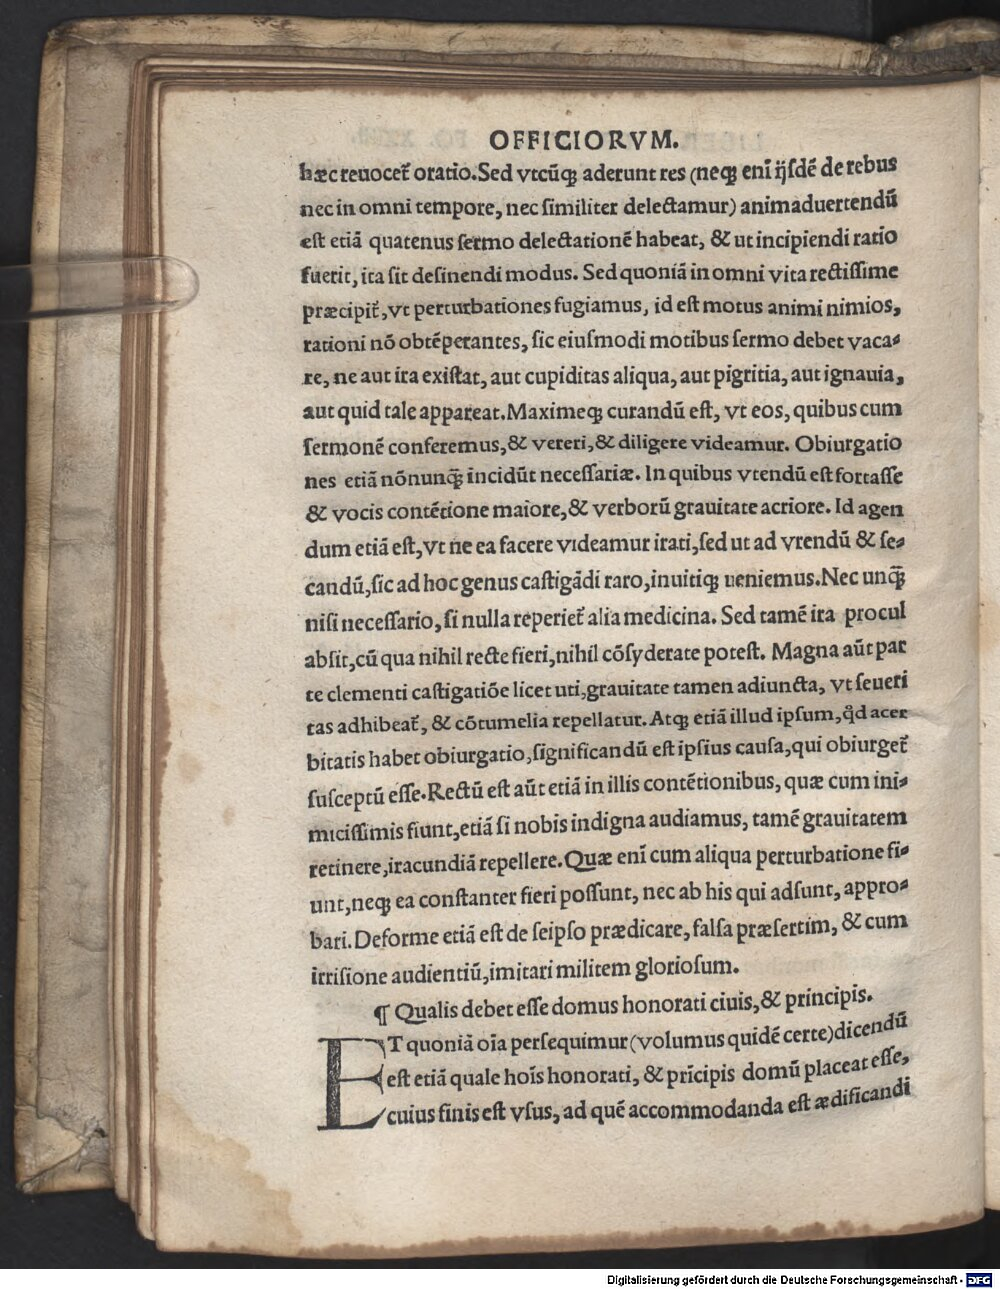 OFFICIORVM.
hæc reuocet᷑ oratio. Sed vtcūq; aderunt res (neq; enī ijsdē de rebus
nec in omni tempore, nec similiter delectamur) animaduertendū
est etiā quatenus sermo delectationē habeat, & ut incipiendi ratio
fuerit, ita sit desinendi modus. Sed quoniā in omni vita rectissime
præcipit᷑, vt perturbationes fugiamus, id est motus animi nimios,
rationi nō obtēperantes, sic eiusmodi motibus sermo debet vaca-
re, ne aut ira existat, aut cupiditas aliqua, aut pigritia, aut ignauia,
aut quid tale appareat. Maximeq; curandū est, vt eos, quibus cum
sermonē conferemus, & vereri, & diligere videamur. Obiurgatio
nes etiā nōnunq̃ incidūt necessariæ. In quibus vtendū est fortasse
& vocis contētione maiore, & verborū grauitate acriore. Id agen
dum etiā est, vt ne ea facere videamur irati, sed ut ad vrendū & se-
candū, sic ad hoc genus castigādi raro, inuitiq; ueniemus. Nec unq̃
nisi necessario, si nulla reperiet᷑ alia medicina. Sed tamē ira procul
absit, cū qua nihil recte fieri, nihil cōsyderate potest. Magna aūt par
te clementi castigatiōe licet uti, grauitate tamen adiuncta, vt seueri
tas adhibeat᷑, & cōtumelia repellatur. Atq; etiā illud ipsum, qd̓ acer
bitatis habet obiurgatio, significandū est ipsius causa, qui obiurget᷑
susceptū esse. Rectū est aūt etiā in illis contētionibus, quæ cum ini-
micissimis fiunt, etiā si nobis indigna audiamus, tamē grauitatem
retinere, iracundiā repellere. Quæ enī cum aliqua perturbatione fi-
unt, neq; ea constanter fieri possunt, nec ab his qui adsunt, appro-
bari. Deforme etiā est de seipso prædicare, falsa præsertim, & cum
irrisione audientiū, imitari militem gloriosum.
¶ Qualis debet esse domus honorati ciuis, & principis.
ET quoniā oīa persequimur (volumus quidē certe) dicendū
est etiā quale hoīs honorati, & prīcipis domū placeat esse,
cuius finis est vsus, ad quē accommodanda est ædificandi
Digitalisierung gefördert durch die Deutsche Forschungsgemeinschaft - DFG